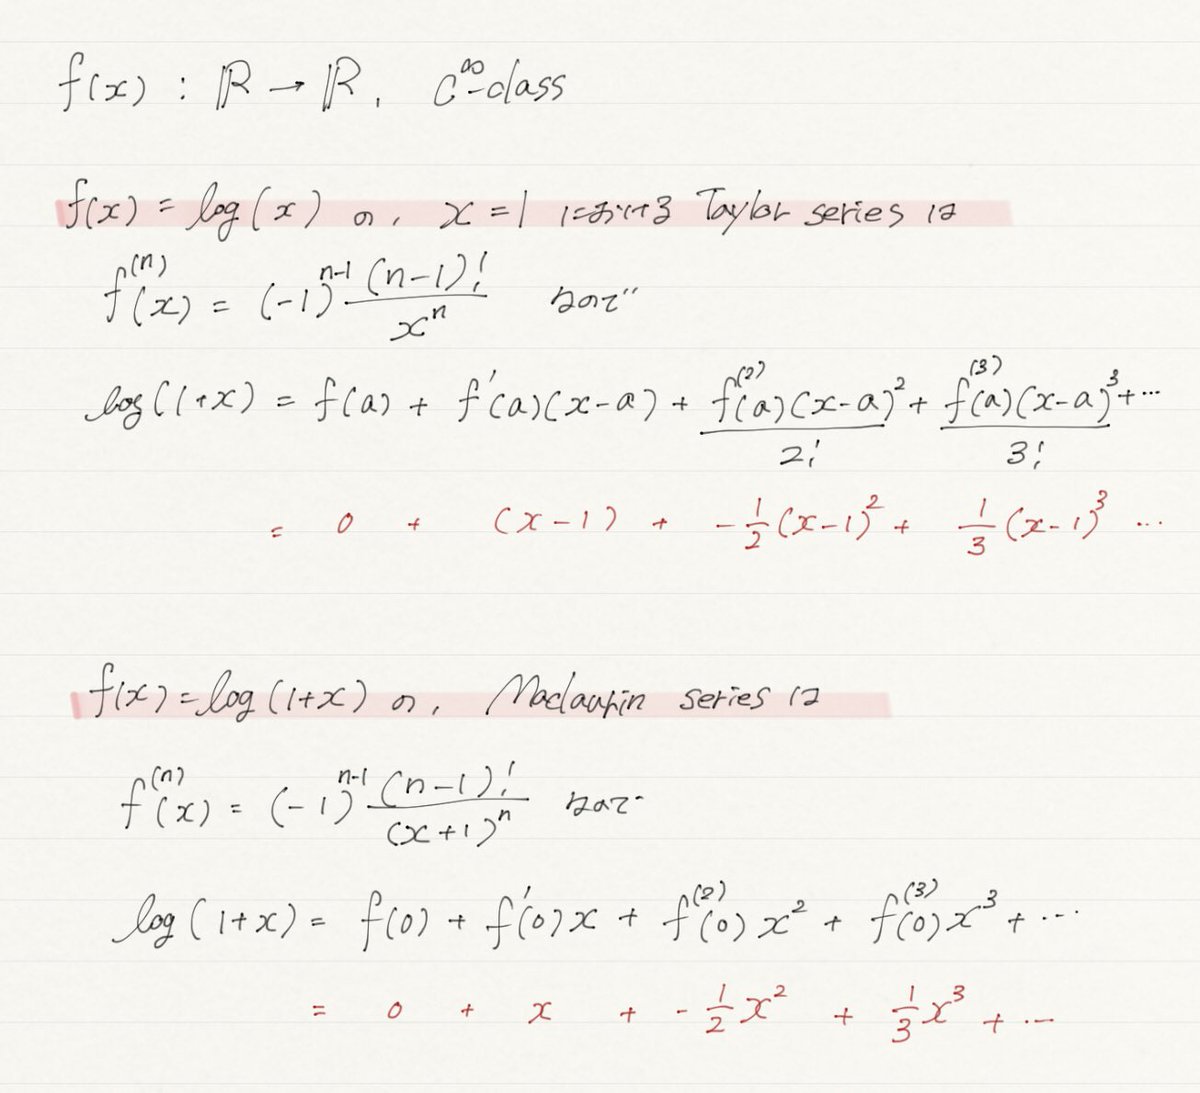 f(x) : ℝ → ℝ, C^∞-class
f(x) = log(x) の, x = 1 における Taylor series は
f^(n)(x) = (-1)^(n-1) (n-1)! / x^n なので
log(1+x) = f(a) + f'(a)(x-a) + f^(2)(a)(x-a)^2 / 2! + f^(3)(a)(x-a)^3 / 3! + ...
= 0 + (x-1) + -1/2 (x-1)^2 + 1/3 (x-1)^3 ...
f(x) = log(1+x) の, Maclaurin series は
f^(n)(x) = (-1)^(n-1) (n-1)! / (x+1)^n なので
log(1+x) = f(0) + f'(0)x + f^(2)(0)x^2 + f^(3)(0)x^3 + ...
= 0 + x + -1/2 x^2 + 1/3 x^3 + ...